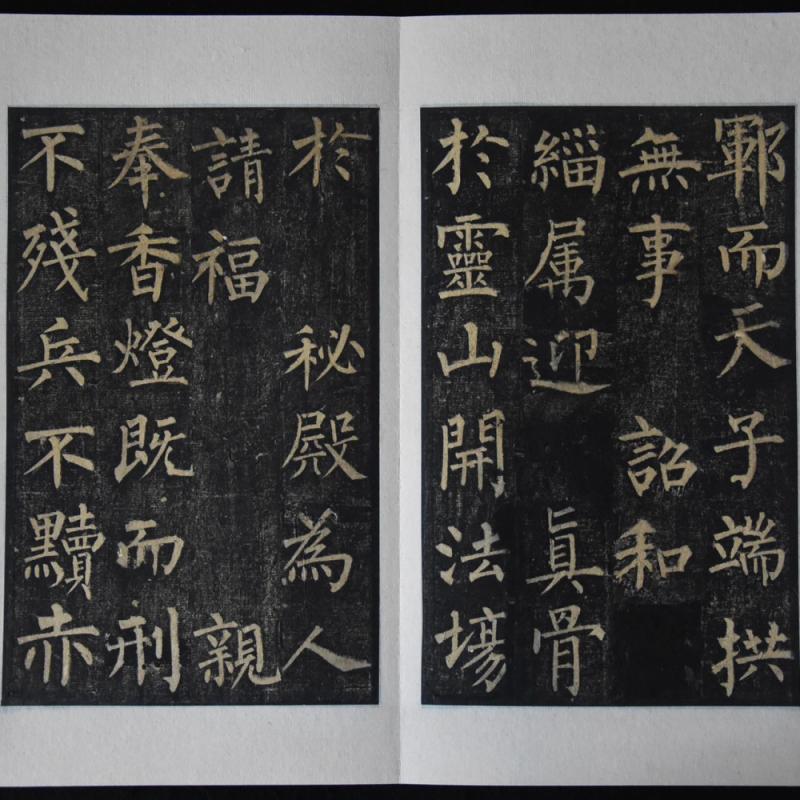 鄆而天子端拱
無事 詔和
緇属迎 眞骨
於靈山開法塲
於 秘殿為人
請福 親
奉香燈既而刑
不殘兵不黷赤